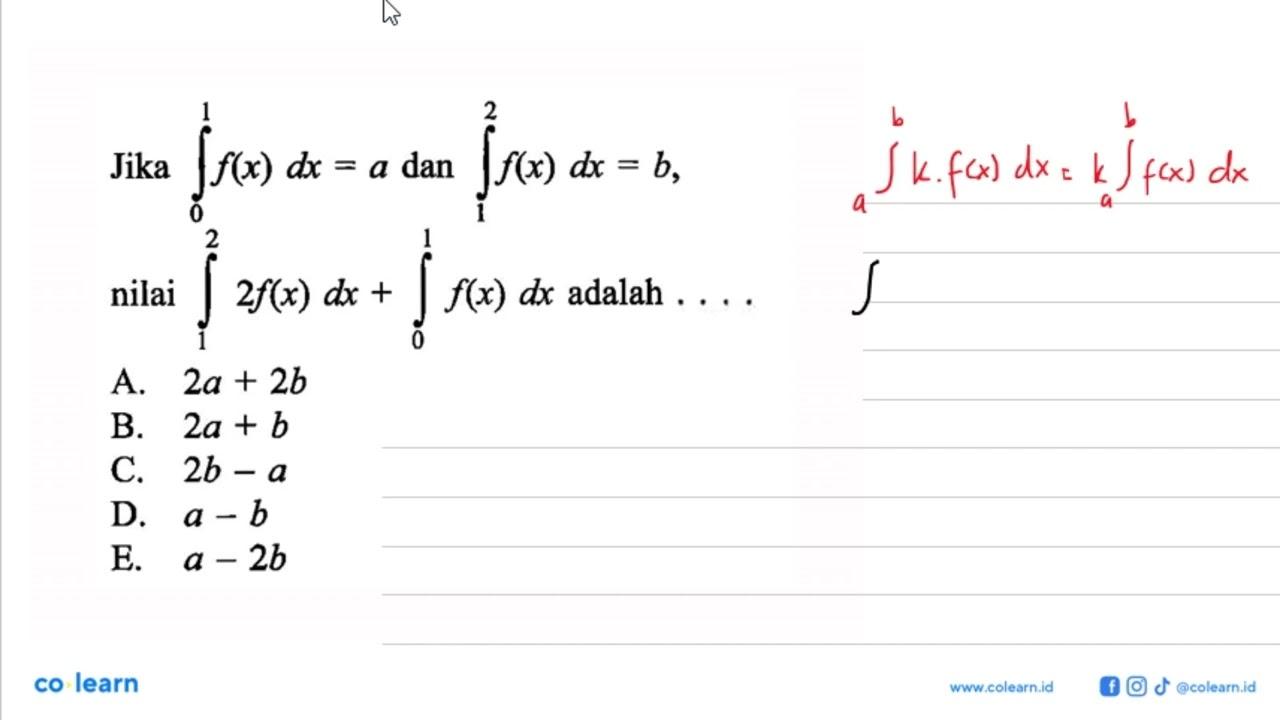 Jika ∫₀¹ f(x) dx = a dan ∫₁² f(x) dx = b,
nilai ∫₁² 2f(x) dx + ∫₀¹ f(x) dx adalah . . . .
A. 2a + 2b
B. 2a + b
C. 2b – a
D. a – b
E. a – 2b
∫ₐᵇ k.f(x) dx = k ∫ₐᵇ f(x) dx
∫
co learn
www.colearn.id
@colearn.id